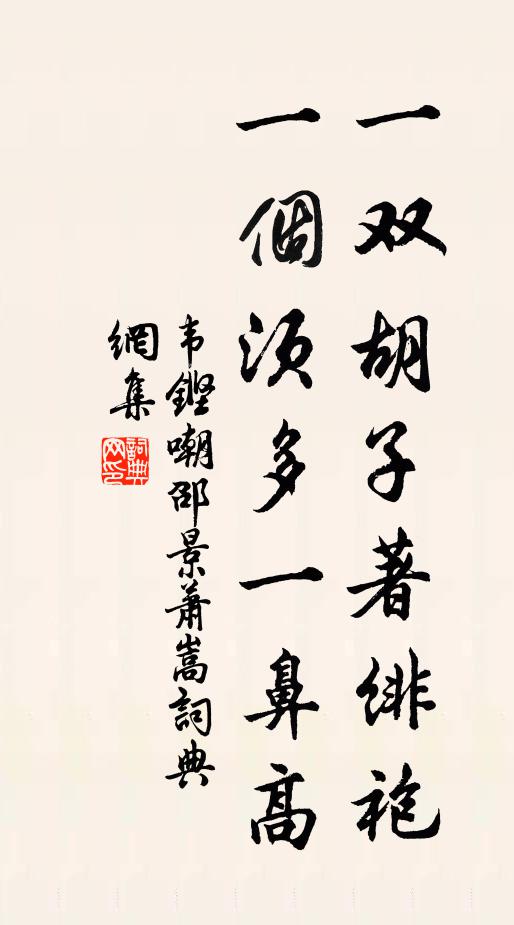 一双胡子著绯袍
一個须多一鼻高
韦鏗嘲邵景萧嵩詞典
網集
詞典
网印